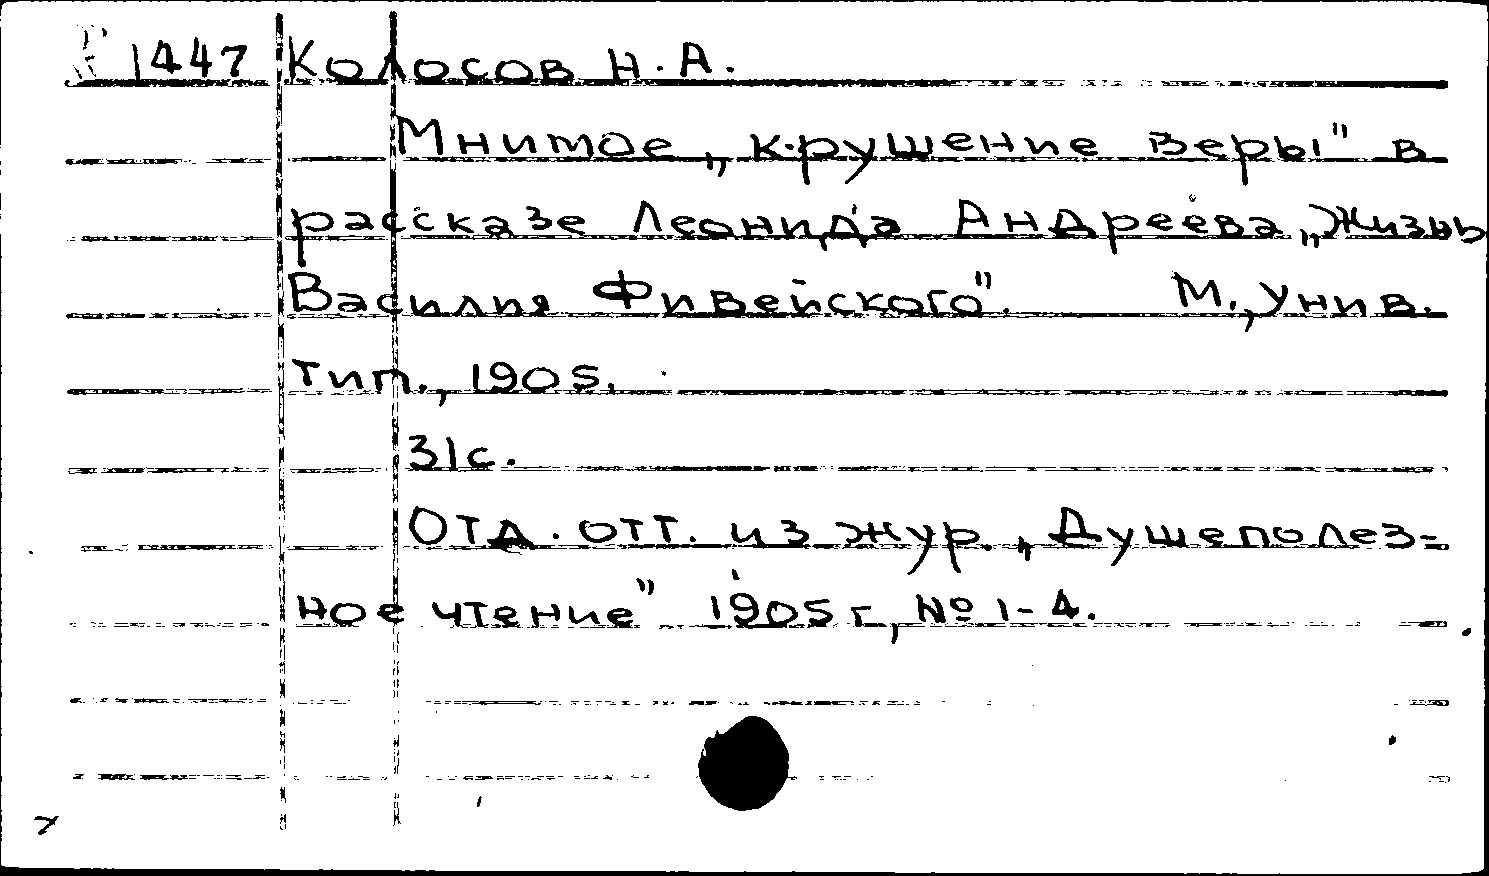 1447 Колосов Н.А.
Мнимое „крушение веры" в
рассказе Леонида Андреева „Жизнь
Василия Фивейского". М., Унив.
тип., 1905.
31с.
Отд. отт. из жур. „Душеполез-
ное чтение" 1905 г., № 1-4.